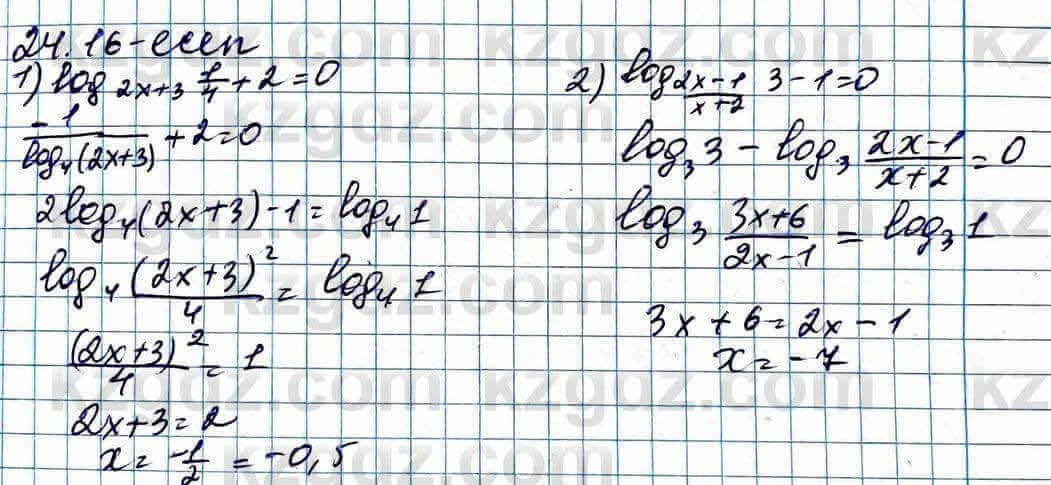 24.16-есеп
1) log₂ₓ₊₃ 1/4 + 2 = 0
-1/log₄(2x+3) + 2 = 0
2log₄(2x+3) - 1 = log₄1
log₄ (2x+3)²/4 = log₄1
(2x+3)²/4 = 1
2x+3 = 2
x = -1/2 = -0,5
2) log_(2x-1)/(x+2) 3 - 1 = 0
log₃3 - log₃ (2x-1)/(x+2) = 0
log₃ (3x+6)/(2x-1) = log₃1
3x + 6 = 2x - 1
x = -7
kzgdz.com